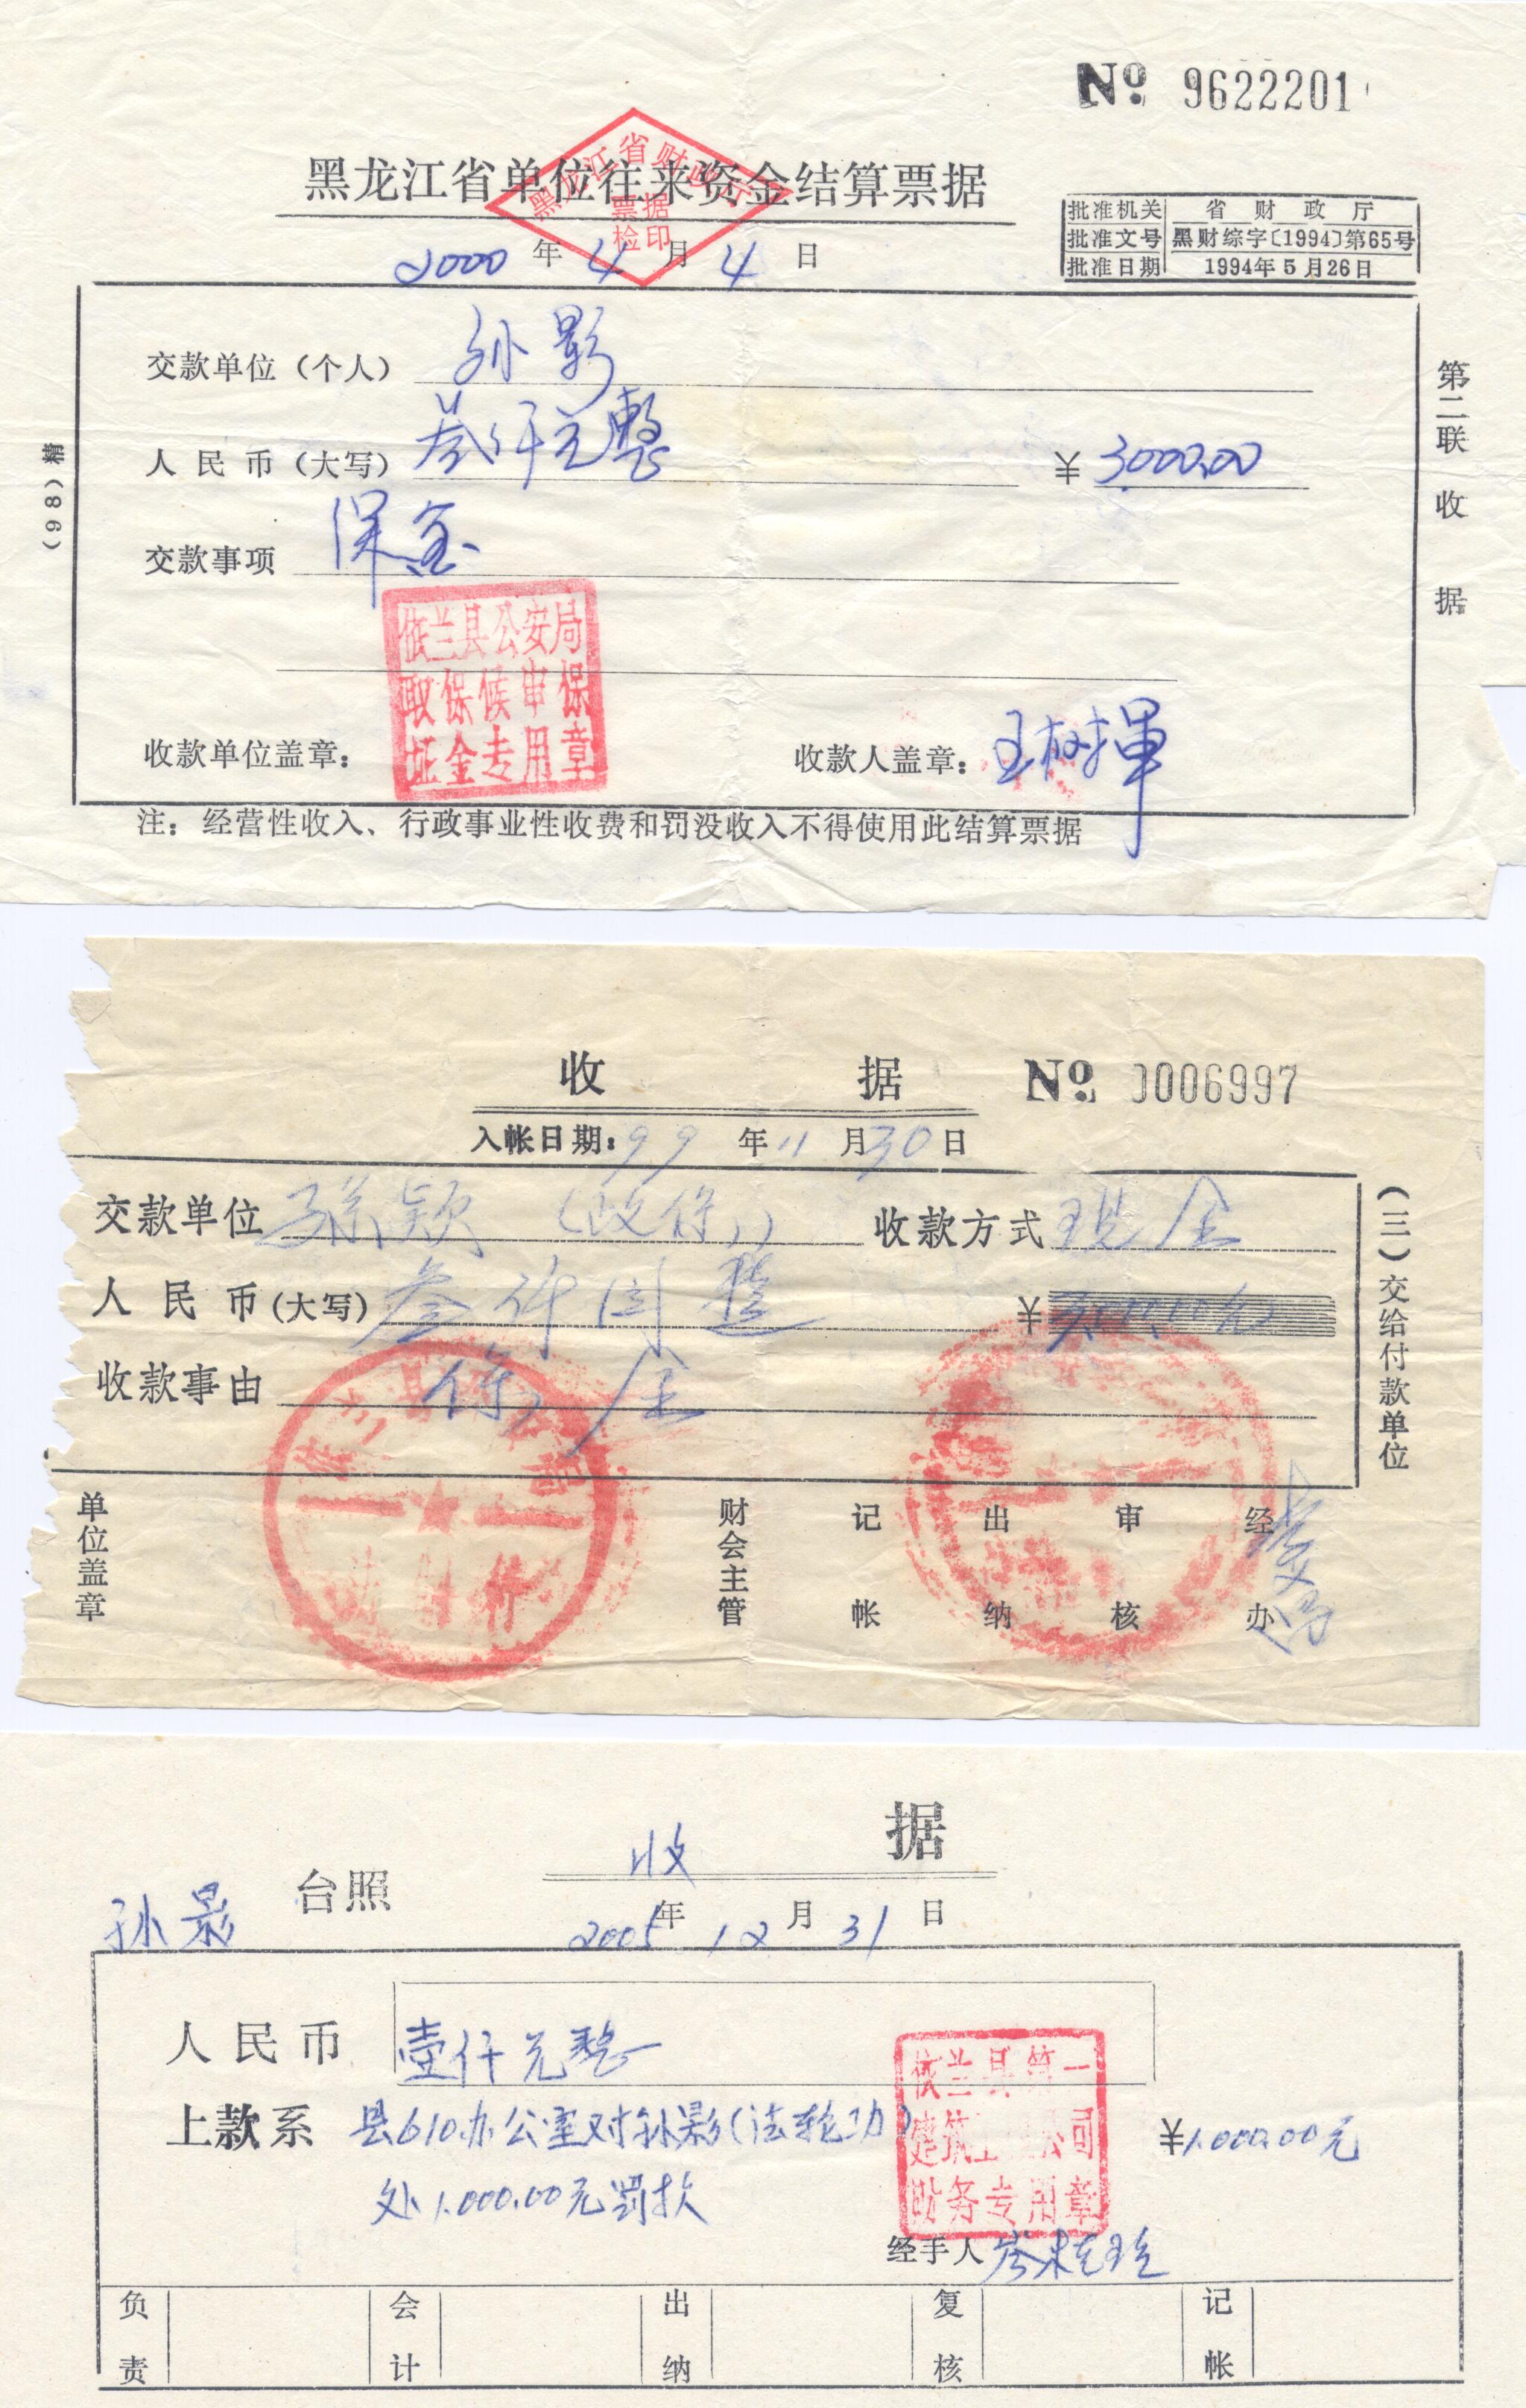 № 9622201
黑龙江省单位往来资金结算票据
黑龙江省财政厅
票据
检印
批准机关 省财政厅
批准文号 黑财综字〔1994〕第65号
批准日期 1994年5月26日
2000年4月4日
交款单位（个人） 孙影
人民币（大写） 叁仟元整 ¥3000.00
交款事项 保金
依兰县公安局
取保候审保
证金专用章
收款单位盖章： 收款人盖章：王树挥
注：经营性收入、行政事业性收费和罚没收入不得使用此结算票据
第二联 收据
（98）精
收据 № 0006997
入帐日期：99年11月30日
交款单位 孙颖（政保） 收款方式 现金
人民币（大写） 叁仟圆整 ¥
收款事由 保金
（三）交给付款单位
单位盖章 财会主管 记帐 出纳 审核 经办
收据
孙影 台照
2005年12月31日
人民币 壹仟元整
上款系 县610办公室对孙影（法轮功） ¥1.000.00元
处1.000.00元罚款
依兰县第一
建筑工 公司
财务专用章
经手人
负责 会计 出纳 复核 记帐